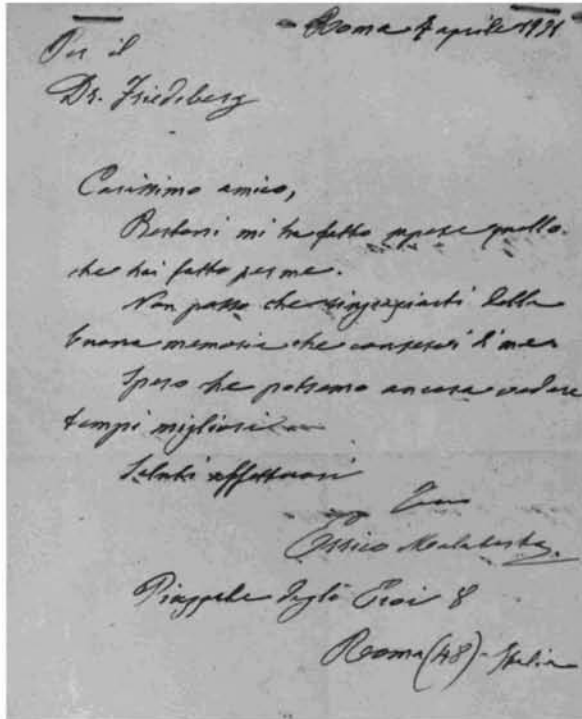 Roma 4 aprile 1931
Per il
Dr. Friedeberg
Carissimo amico,
Bertoni mi ha fatto sapere quello
che hai fatto per me.
Non posso che ringraziarti della
buona memoria che conservi di me
Spero che potremo ancora vedere
tempi migliori
Saluti affettuosi
Tuo
Errico Malatesta
Piazzale degli Eroi 8
Roma (48) - Italia